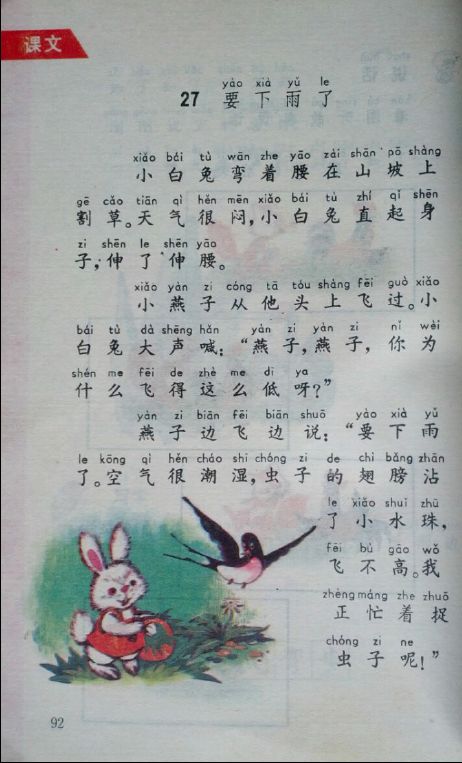 课文
yào xià yǔ le
27 要下雨了
xiǎo bái tù wān zhe yāo zài shān pō shàng
小白兔弯着腰在山坡上
gē cǎo tiān qì hěn mēn xiǎo bái tù zhí qǐ shēn
割草。天气很闷,小白兔直起身
zi shēn le shēn yāo
子,伸了伸腰。
xiǎo yàn zi cóng tā tóu shàng fēi guò xiǎo
小燕子从他头上飞过。小
bái tù dà shēng hǎn yàn zi yàn zi nǐ wèi
白兔大声喊:“燕子,燕子,你为
shén me fēi de zhè me dī ya
什么飞得这么低呀?”
yàn zi biān fēi biān shuō yào xià yǔ
燕子边飞边说:“要下雨
le kōng qì hěn cháo shī chóng zi de chì bǎng zhān
了。空气很潮湿,虫子的翅膀沾
le xiǎo shuǐ zhū
了小水珠,
fēi bù gāo wǒ
飞不高。我
zhèng máng zhe zhuō
正忙着捉
chóng zi ne
虫子呢!”
92